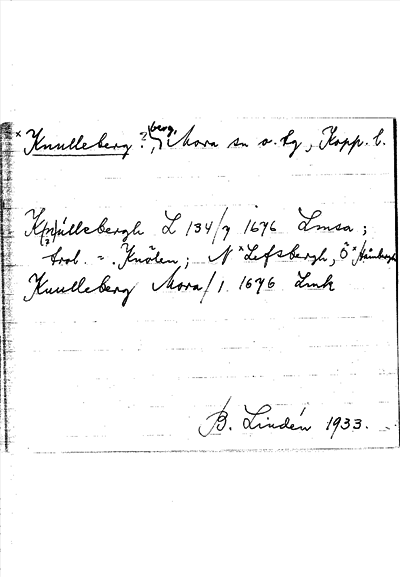 × Knulleberg ?, berg, Mora sn o. tg, Kopp. l.
K(n)ùllebergh L 134/7 1676 Lmsa;
(?)
trol. = . Knölen; N × Lefsbergh, Ö ×
Knulleberg Mora/1 1676 Lmk
B. Lindén 1933.